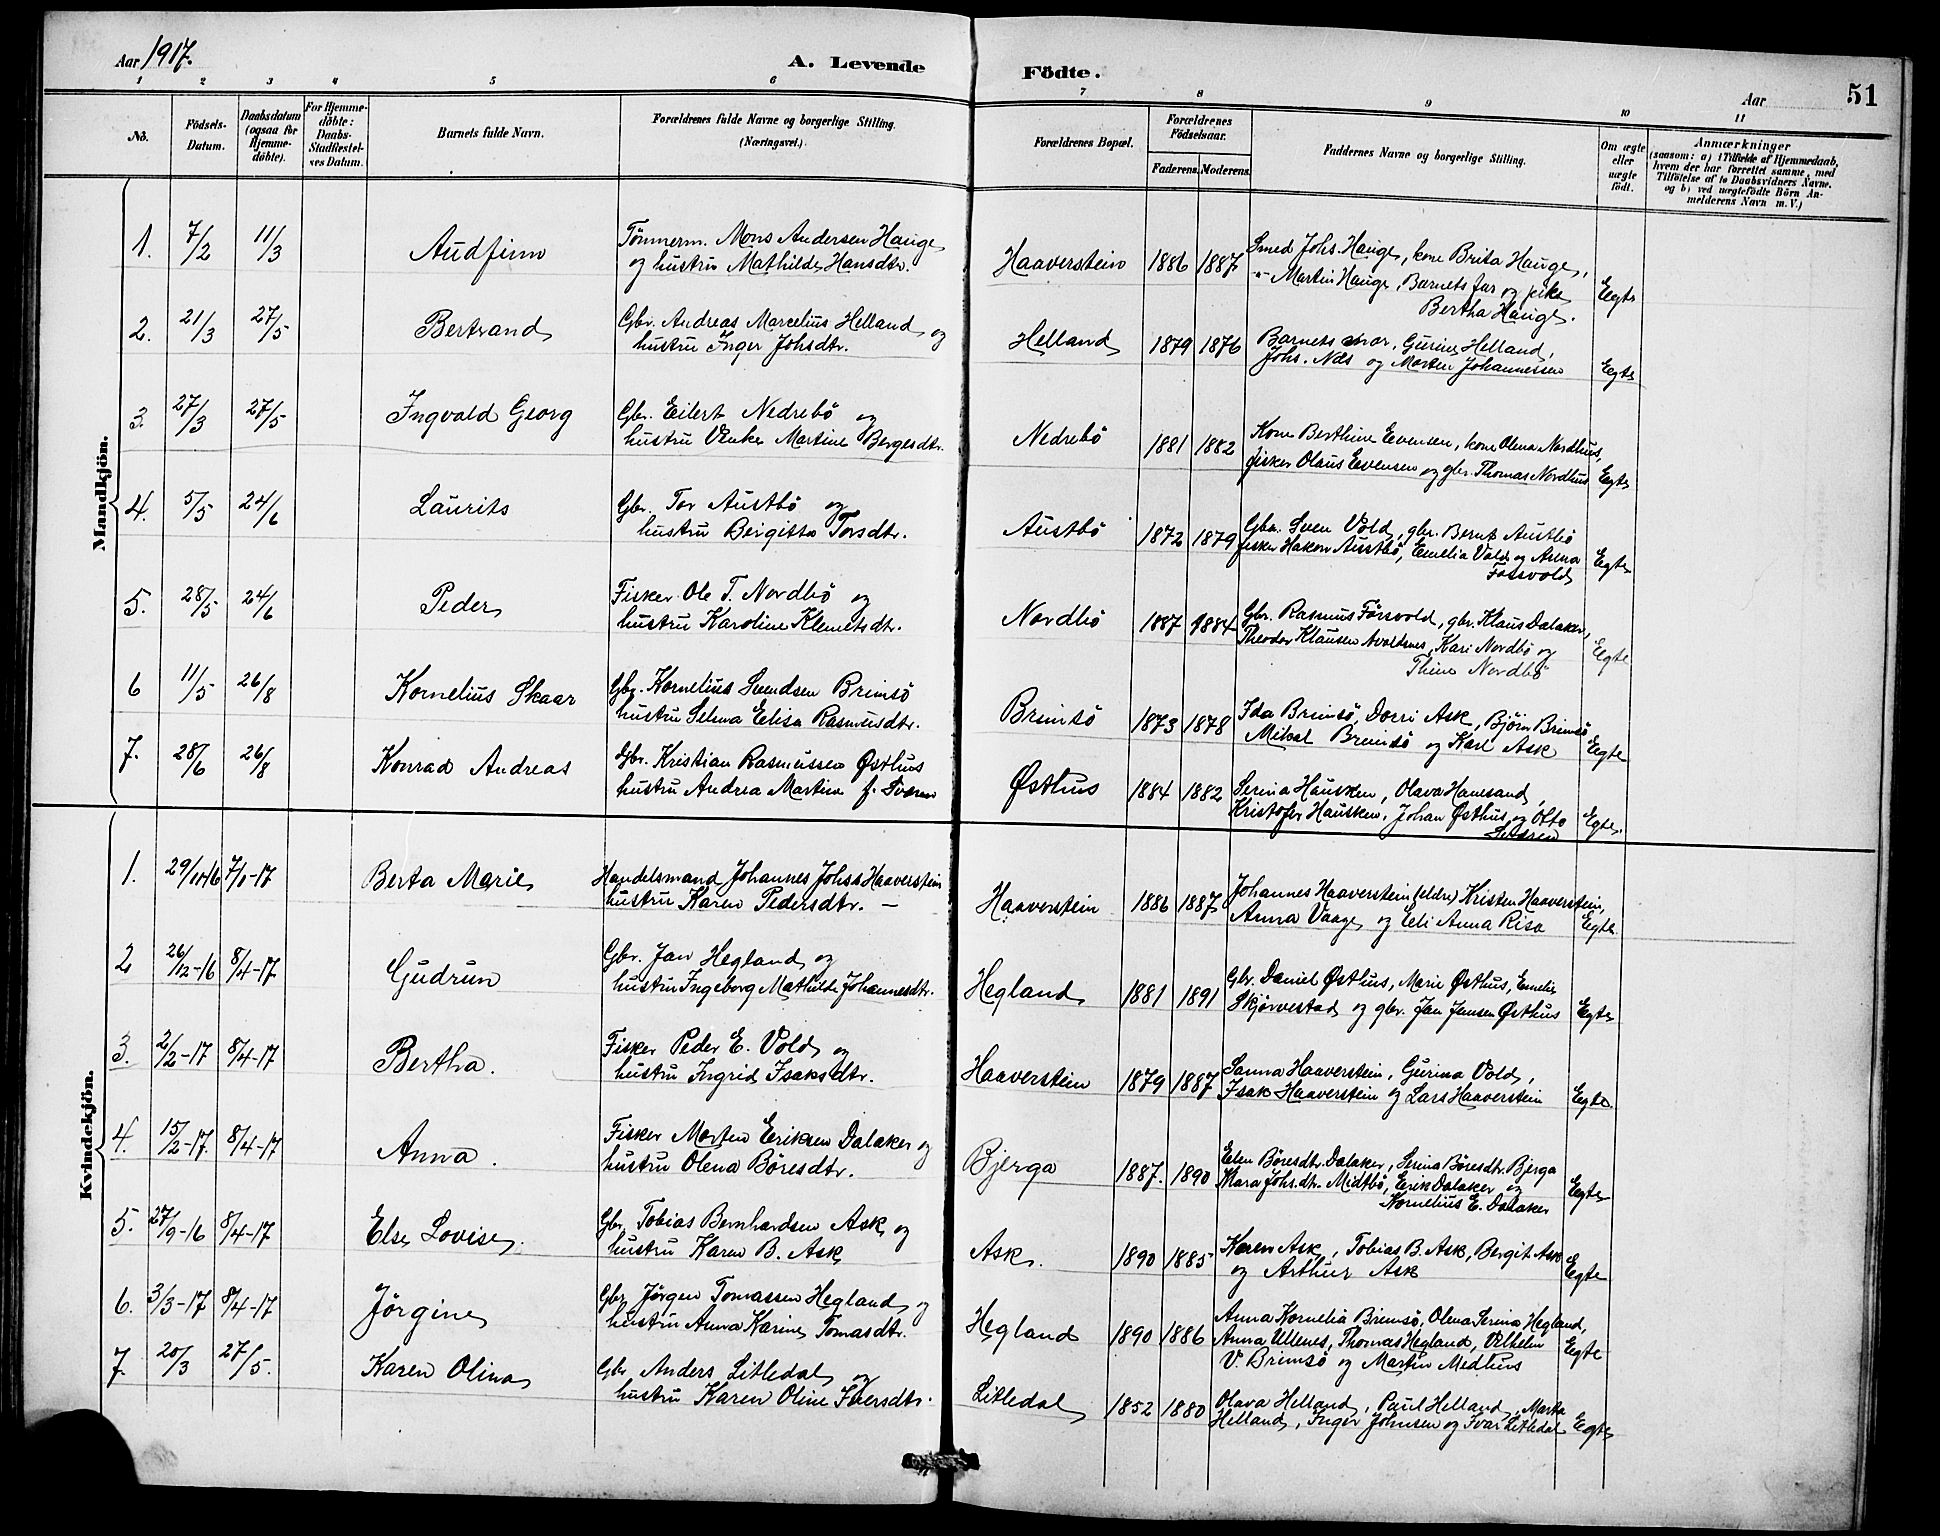 Aar 1917.
A. Levende Födte.
Aar
51
1 2 3 4 5 6 7 8 9 10 11
No.
Födsels-Datum.
Daabsdatum (ogsaa for Hjemmedöbte).
For Hjemmedöbte: Daabs-Stadfestelses Datum.
Barnets fulde Navn.
Forældrenes fulde Navne og borgerlige Stilling. (Næringsvei.)
Forældrenes Bopæl.
Forældrenes Födselsaar.
Faderens. Moderens.
Faddernes Navne og borgerlige Stilling.
Om ægte eller uægte födt.
Anmærkninger
(saasom: a) i Tilfælde af Hjemmedaab,
hvem der har forrettet samme, med
Tilföielse af to Daabsvidners Navne.
og b) ved uægtefödte Börn An-
melderens Navn m. V.)
Mandkjön.
1. 7/2 11/3 Audfinn Tömmerm. Mons Andersen Hauge
og hustru Mathilde Hansdtr. Haaverstein 1886 1887 Smed Johs. Hauge, kone Brita Hauge,
-"- Martin Hauge, Barnets far og pike
Bertha Hauge. Egte
2. 21/3 27/5 Bertrand Gbr. Andreas Marcelius Helland og
hustru Inger Johsdtr. Helland 1879 1876 Barnets mor, Gurine Helland,
Johs. Næs og Morten Johannessen Egte
3. 27/3 27/5 Ingvald Georg Gbr. Eilert Nedrebö og
hustru Martine Bergesdtr. Nedrebö 1881 1882 Kone Berthine Evensen, kone Olena Nordhus,
fisker Olaus Evensen og gbr. Thomas Nordhus Egte
4. 5/5 24/6 Laurits Gbr. Tor Austbö og
hustru Bergitte Torsdtr. Austbö 1872 1879 Gbr. Sven Vold, gbr. Bernt Austbö
fisker Hakon Austbö, Emelia Vold og Anna
Egte
5. 28/5 24/6 Peder Fisker Ole T. Nordbö og
hustru Karoline Klemetsdtr. Nordbö 1887 1884 Gbr. Rasmus Försvold, gbr. Klaus Dalaker,
Theodor Klausen Avaldsnes, Kari Nordbö og
Thine Nordbö Egte
6 11/5 26/8 Kornelius Skaar Gbr. Kornelius Svendsen Brimsö
hustru Selma Elisa Rasmusdtr. Brimsö 1873 1878 Ida Brimsö, Dorri Ask, Björn Brimsö
Mikal Brimsö og Karl Ask Egte
7. 28/6 26/8 Konrad Andreas Gbr. Kristian Rasmussen Østhus
hustru Andrea Martine f. Østhus 1884 1882 Serina Hausken, Olava Hanesand,
Kristofer Hausken, Johan Østhus og Otto
Egte.
Kvindekjön.
1. 29/10-16 7/1-17 Berta Marie Handelsmand Johannes Johs. Haaverstein
hustru Karen Pedersdtr. - Haaverstein 1886 1887 Johannes Haaverstein (eldre) Kristen Haaverstein,
Anna Vaage og Eli Anna Risa Egte.
2 26/12-16 8/4-17 Gudrun Gbr. Jan Hegland og
hustru Ingeborg Mathilde Johannesdtr. Hegland 1881 1891 Gbr. Daniel Østhus, Marie Østhus, Emelie
Skjörvestad og gbr. Jan Jansen Østhus Egte
3. 2/2-17 8/4-17 Bertha. Fisker Peder E. Vold og
hustru Ingrid Isaksdtr. Haaverstein 1879 1887 Sanna Haaverstein, Gurina Vold,
Isak Haaverstein og Lars Haaverstein Egte.
4. 15/2-17. 8/4-17 Anna. Fisker Morten Eriksen Dalaker og
hustru Olena Böresdtr. Bjerga 1887. 1890 Elen Böresdtr. Dalaker, Serina Böresdtr. Bjerga
Mara Johsdtr. Midtbö, Erik Dalaker og
Kornelius E. Dalaker Egte
5. 27/9-16 8/4-17 Else Lovise. Gbr. Tobias Bernhardsen Ask og
hustru Karen B. Ask Ask. 1890 1885 Karen Ask, Tobias B. Ask, Bergit Ask
og Arthur Ask Egte
6. 3/3-17 8/4-17 Jörgine Gbr. Jörgen Tomassen Hegland og
hustru Anna Karine Tomasdtr. Hegland 1890 1886 Anna Kornelia Brimsö, Olena Serina Hegland,
Anna Ullenes, Thomas Hegland, Vilhelm
V. Brimsö og Martin Medhus Egte
7. 20/3 27/5. Karen Olina Gbr Anders Litledal og
hustru Karen Oline Iversdtr. Litledal 1852 1880 Olava Helland, Paul Helland, Marta
Helland, Inger Johnsen og Ivar Litledal Egte